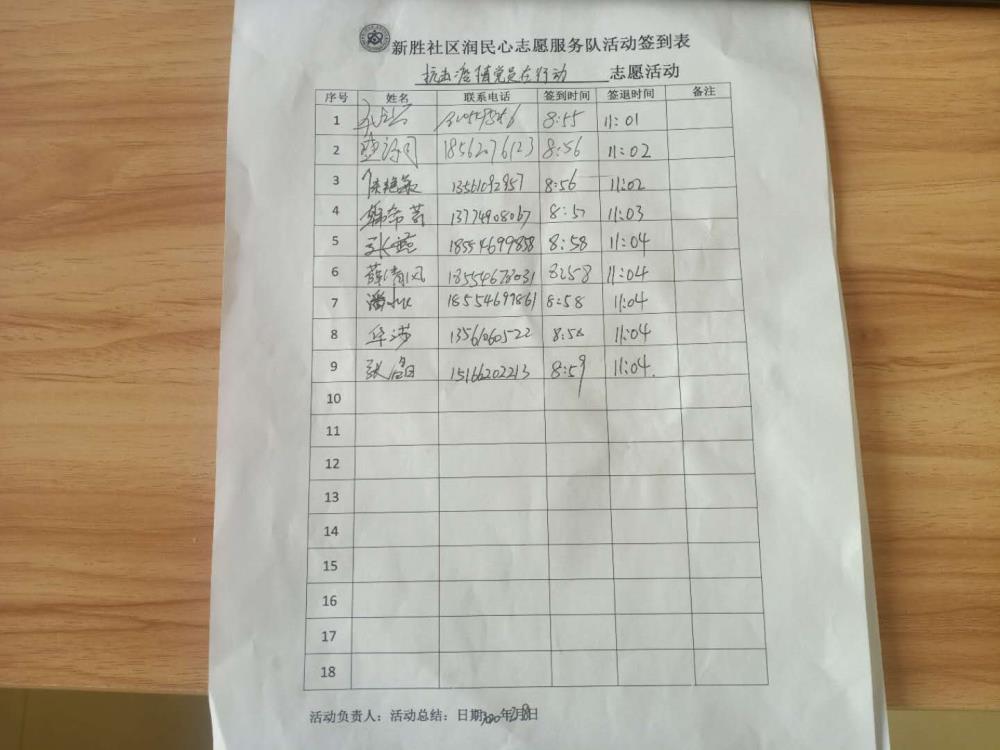 新胜社区润民心志愿服务队活动签到表
抗击疫情党员在行动 志愿活动
序号 姓名 联系电话 签到时间 签退时间 备注
1 8:55 11:01
2 18562076123 8:56 11:02
3 13561092957 8:56 11:02
4 13774908067 8:57 11:03
5 张 18554699858 8:58 11:04
6 薛清风 8:58 11:04
7 潘 18554697861 8:58 11:04
8 华涉 13561060522 8:58 11:04
9 张 15166202213 8:59 11:04.
10
11
12
13
14
15
16
17
18
活动负责人：活动总结：日期 年 月 日